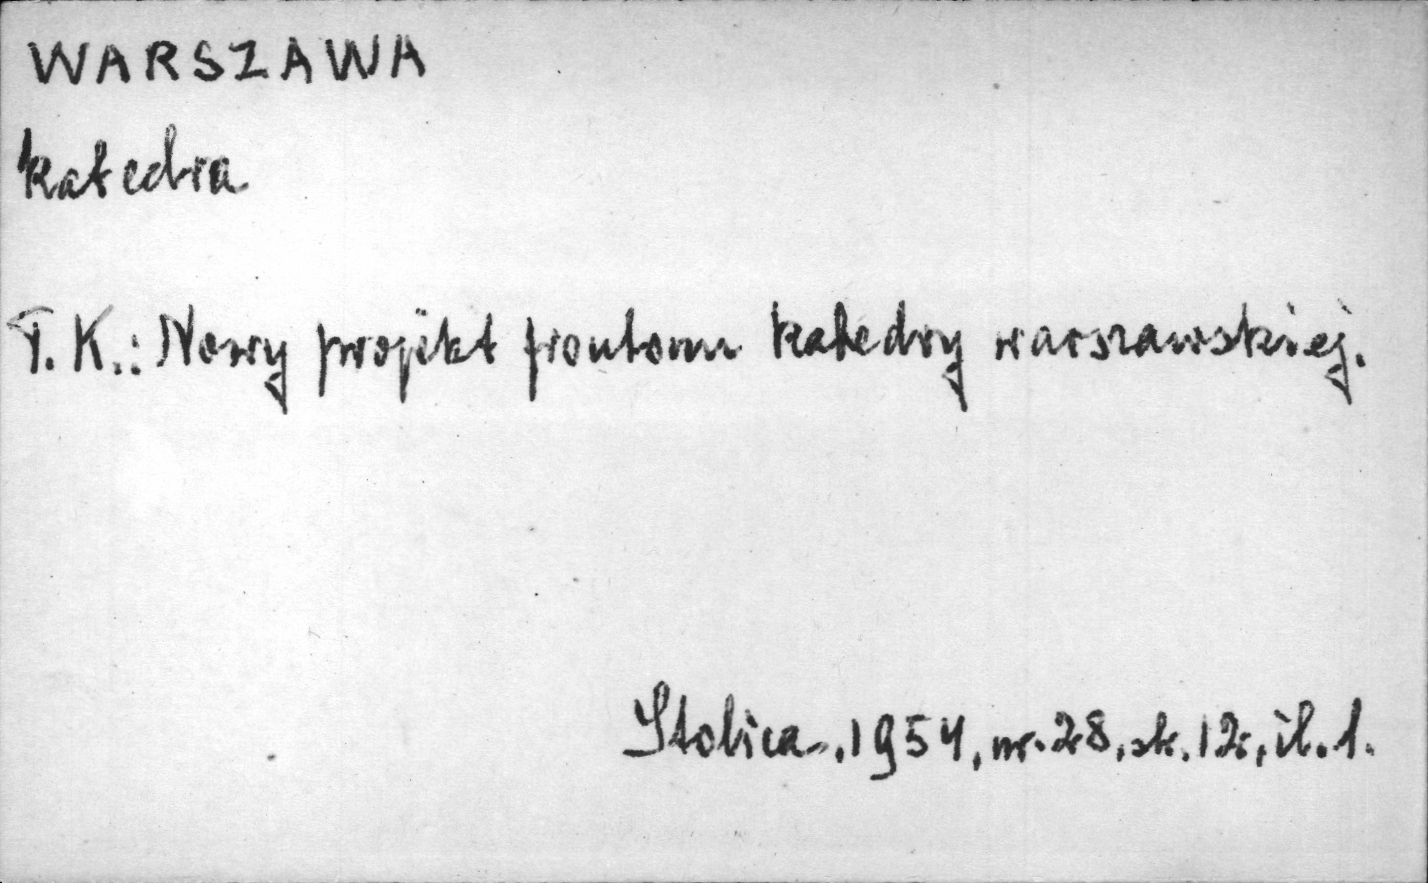 WARSZAWA
Katedra
T. K.: Nowy projekt frontonu Katedry warszawskiej.
Stolica, 1954, nr. 28, str. 12, il. 1.